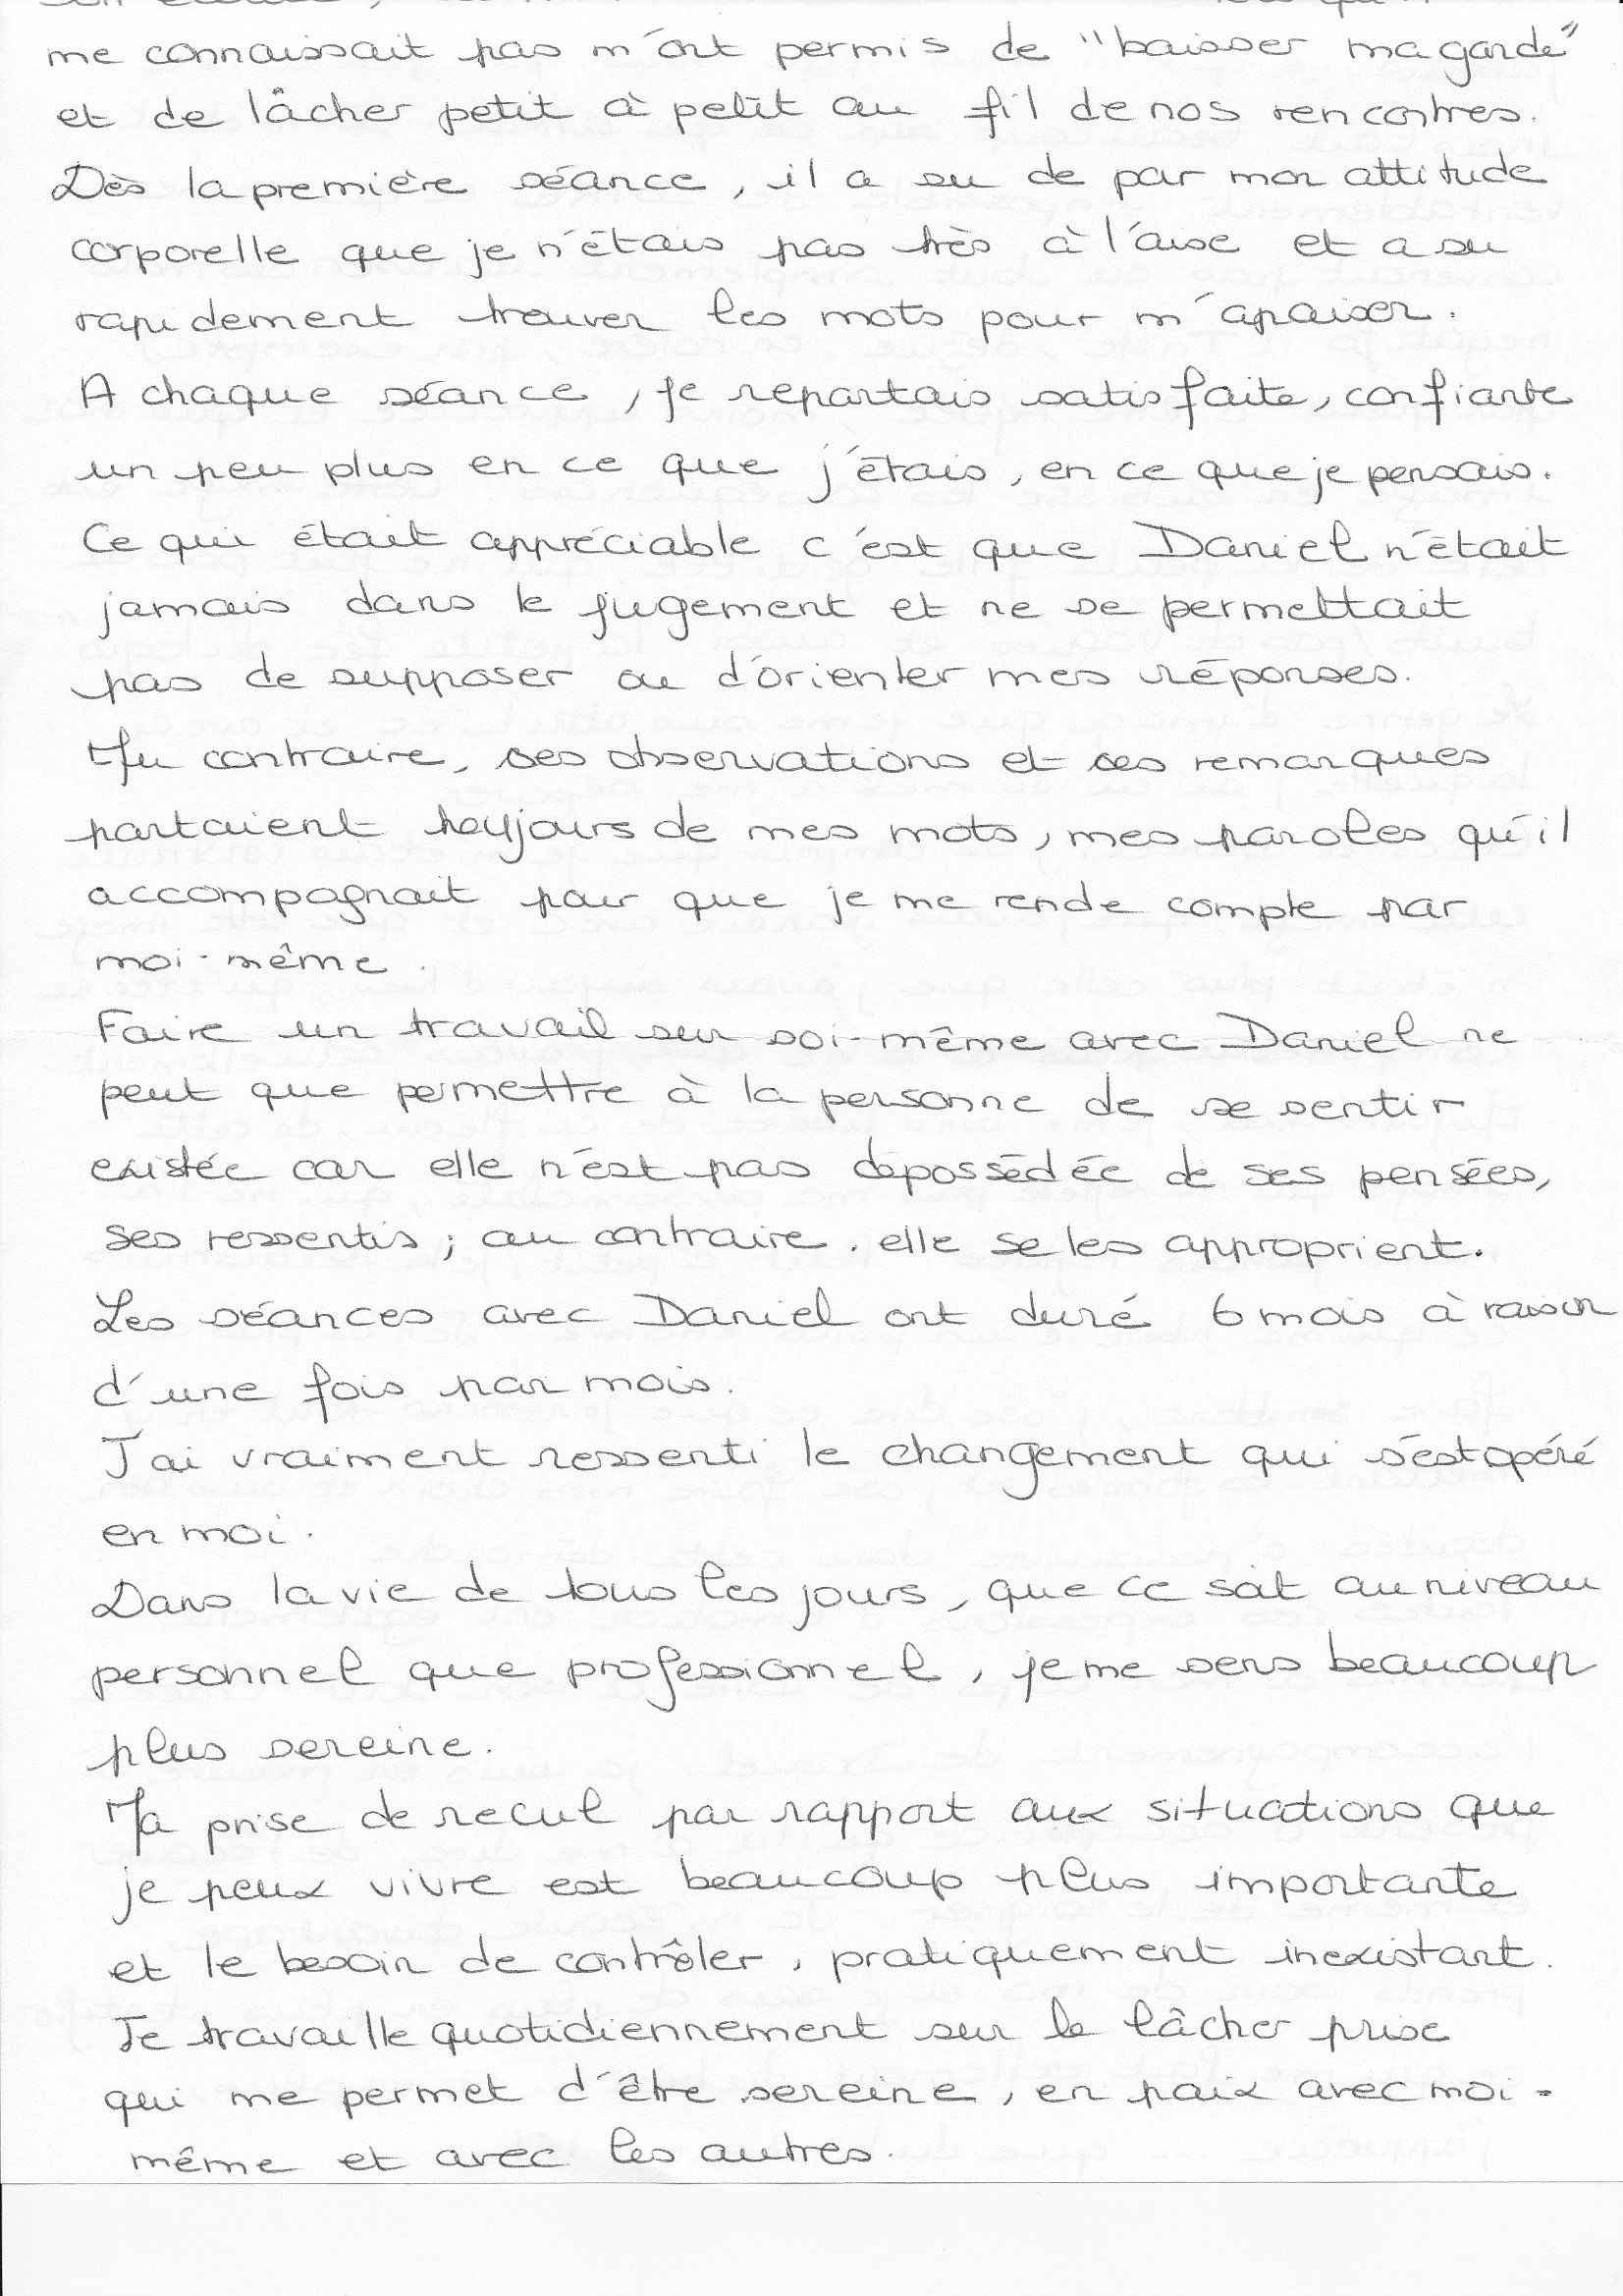 me connaissait pas m'ont permis de "baisser ma garde"
et de lâcher petit à petit au fil de nos rencontres.
Dès la première séance, il a su de par mon attitude
corporelle que je n'étais pas très à l'aise et a su
rapidement trouver les mots pour m'apaiser.
A chaque séance, je repartais satisfaite, confiante
un peu plus en ce que j'étais, en ce que je pensais.
Ce qui était appréciable c'est que Daniel n'était
jamais dans le jugement et ne se permettait
pas de supposer ou d'orienter mes réponses.
Au contraire, ses observations et ses remarques
partaient toujours de mes mots, mes paroles qu'il
accompagnait pour que je me rende compte par
moi-même.
Faire un travail sur soi-même avec Daniel ne
peut que permettre à la personne de se sentir
existée car elle n'est pas dépossédée de ses pensées,
ses ressentis ; au contraire, elle se les approprient.
Les séances avec Daniel ont duré 6 mois à raison
d'une fois par mois.
J'ai vraiment ressenti le changement qui s'est opéré
en moi.
Dans la vie de tous les jours, que ce soit au niveau
personnel que professionnel, je me sens beaucoup
plus sereine.
Ma prise de recul par rapport aux situations que
je peux vivre est beaucoup plus importante
et le besoin de contrôler, pratiquement inexistant.
Je travaille quotidiennement sur le lâcher prise
qui me permet d'être sereine, en paix avec moi-
même et avec les autres.